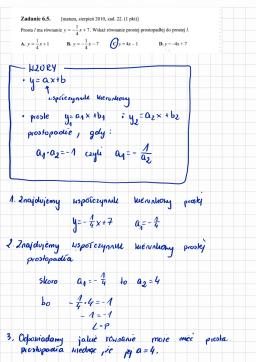 Zadanie 6.5. [matura, sierpień 2010, zad. 22. (1 pkt)]
Prosta l ma równanie y = -1/4 x + 7. Wskaż równanie prostej prostopadłej do prostej l.
A. y = 1/4 x + 1 B. y = -1/4 x - 7 C. y = 4x - 1 D. y = -4x + 7
WZORY
• y = ax + b
współczynnik kierunkowy
• proste y = a₁x + b₁ i y₂ = a₂x + b₂
prostopadłe, gdy:
a₁ · a₂ = -1 czyli a₁ = - 1/a₂
1. Znajdujemy współczynnik kierunkowy prostej
y = -1/4 x + 7 a₁ = -1/4
2. Znajdujemy współczynnik kierunkowy prostej
prostopadła
skoro a₁ = -1/4 to a₂ = 4
bo -1/4 · 4 = -1
-1 = -1
L = P
3. Odpowiadamy jakie równanie może mieć prosta
prostopadła wiedząc, że jej a = 4.